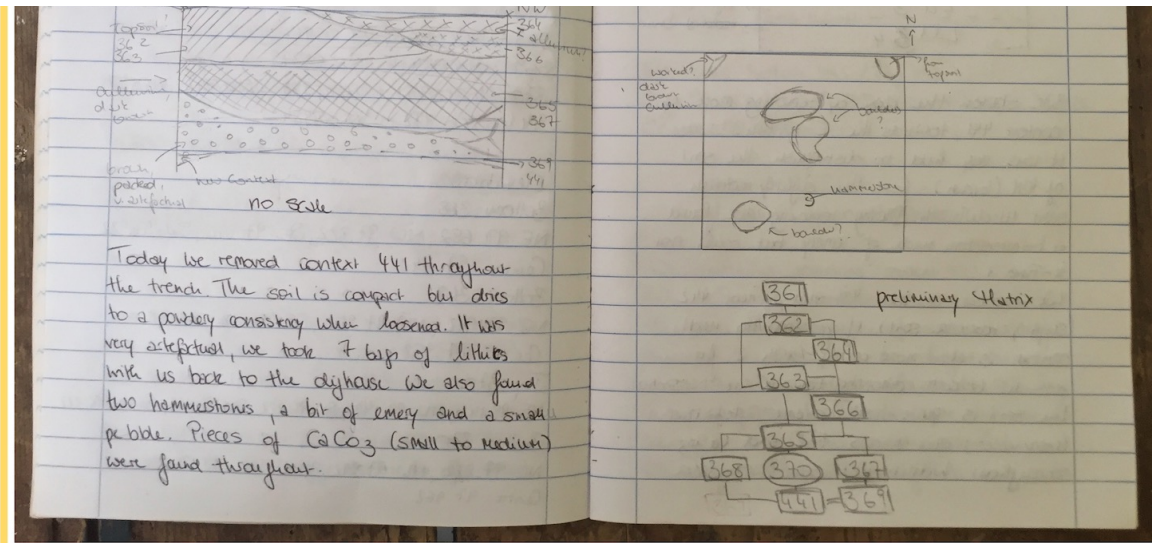 topsoil
362
363
NW
364
366
365
367
369
441
dark
new context
no scale
Today we removed context 441 throughout
the trench. The soil is compact but dries
to a powdery consistency when loosened. It was
very artefactual, we took 7 bags of lithics
with us back to the dighouse. We also found
two hammerstones, a bit of emery and a small
pebble. Pieces of CaCO3 (small to medium)
were found throughout.
N
worked?
dark
brown
colluvium
from
topsoil
boulders
?
hammerstone
boulder?
361
preliminary Matrix
362
364
363
366
365
368
370
367
441
369